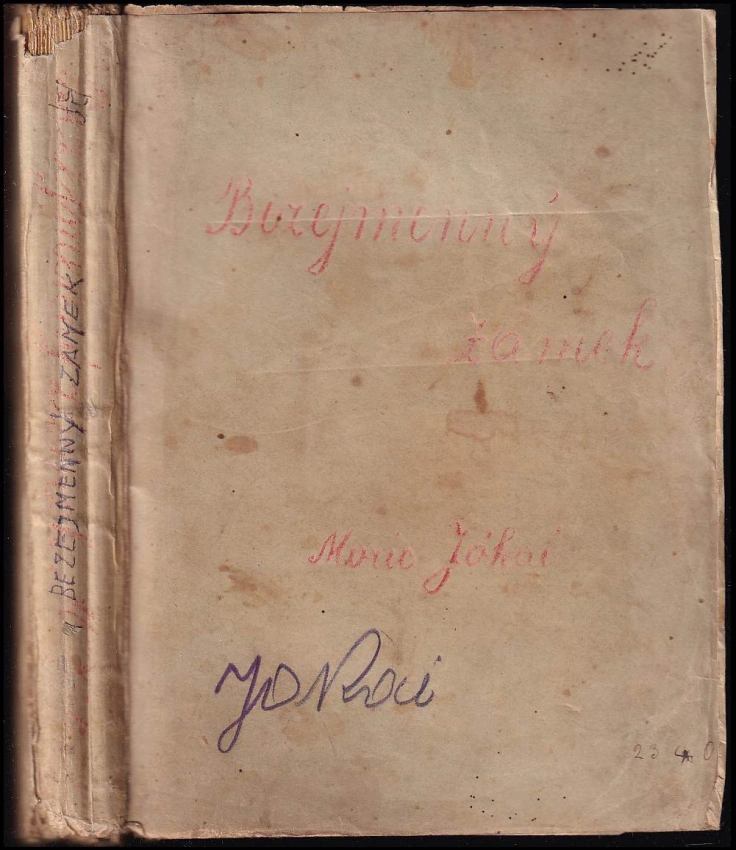 BEZEJMENNÝ ZÁMEK
Bezejmenný
zámek
Moric Jókai
JOKai